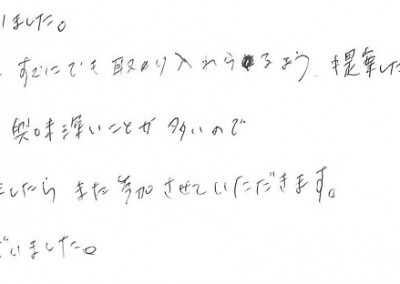 いました。
すぐにでも取り入れらるよう、提案した
興味深いことが多いので
したら また参加させていただきます。
ざいました。